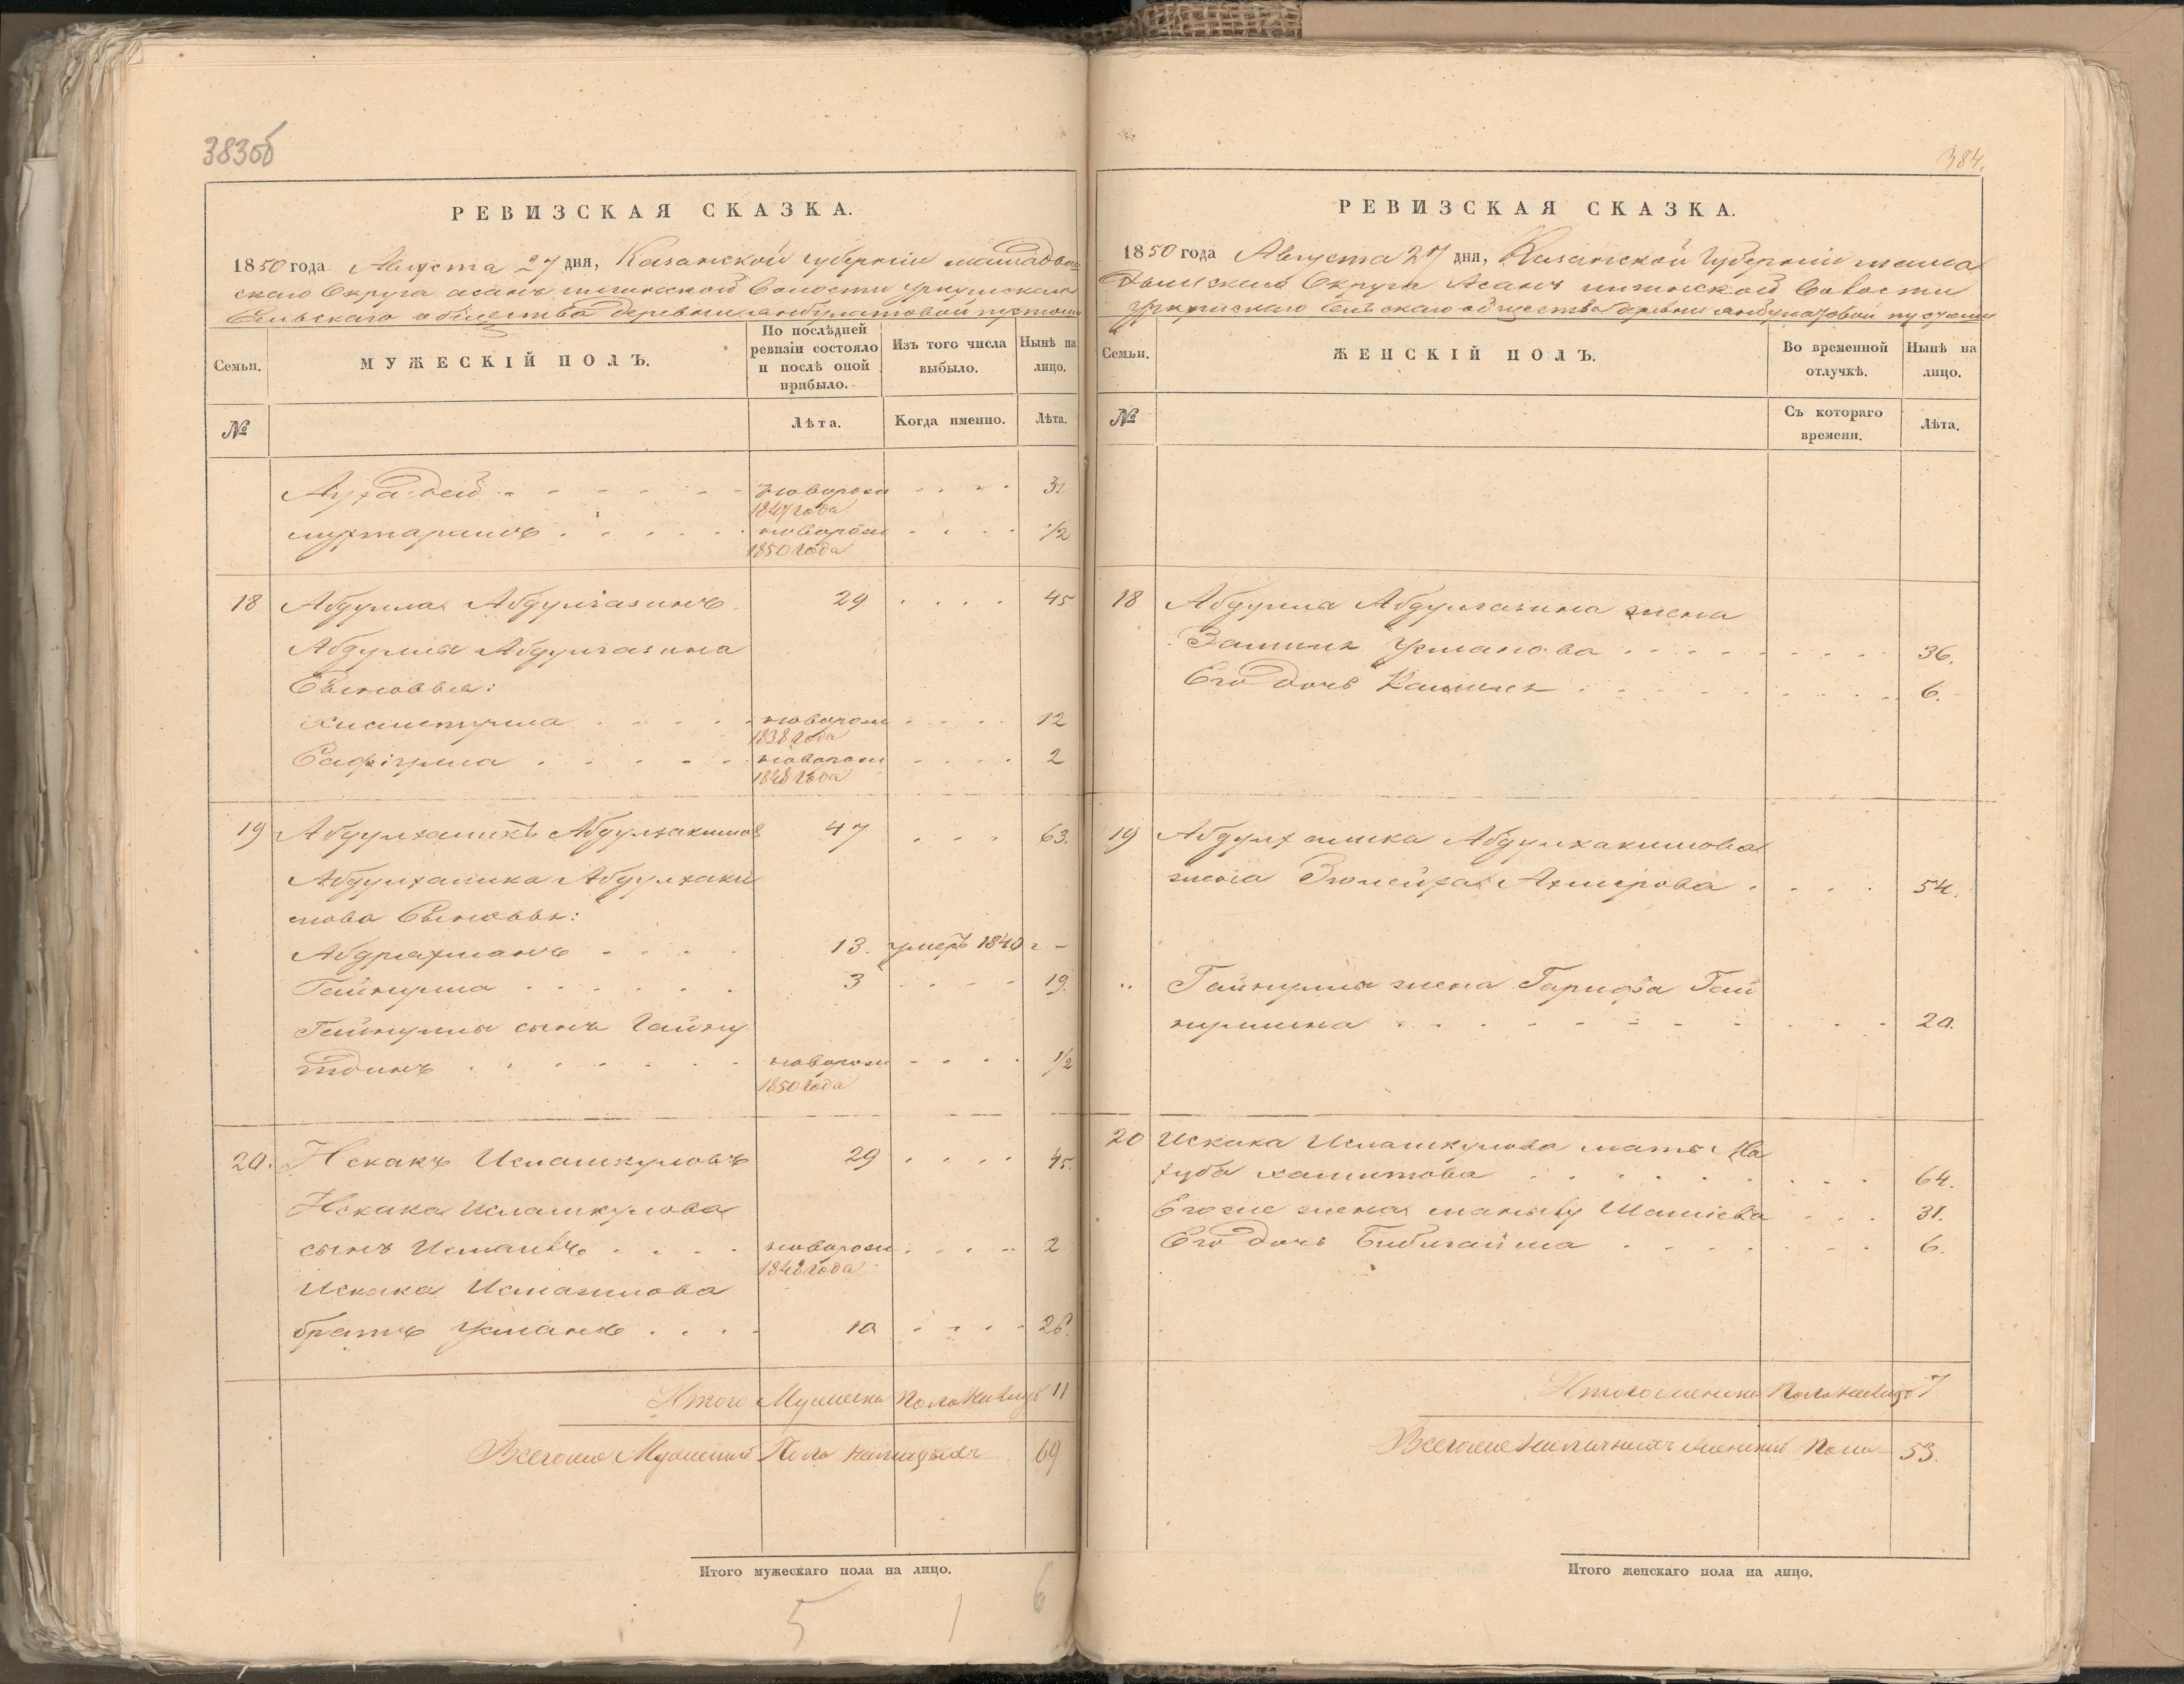 383об
РЕВИЗСКАЯ СКАЗКА.
1850 года Августа 27 дня, Казанской губерніи мамадыш
скаго Округа асанъ илгинской Волости Уркушскаго
Сельскаго общества деревни пустоши
Семьи.
МУЖЕСКІЙ ПОЛЪ.
По послѣдней ревизіи состояло и послѣ оной прибыло.
Изъ того числа выбыло.
Нынѣ на лицо.
№
Лѣта.
Когда именно.
Лѣта.
новорож 3
1847 года
новорож 1/2
1850 года
18 Абдулла Абдулгазинъ 29 45
Абдулла Абдулгазина
Сыновья:
новорож 12
1838 года
Сафіулла новорож 2
1848 года
19 Абдулхаликъ Абдулхакимовъ 47 63.
Абдулхалика Абдулхаки
мова Сыновья:
Абдрахманъ 13. умеръ 1840 г -
Гайнулла 3 19.
Гайнуллы сынъ Гайну
тдинъ новорож 1/2
1850 года
20. Искакъ Исмашкуловъ 29 45.
Искака Исмашкулова
сынъ новорож 2
1848 года
Искака
братъ Усманъ 10 26.
Итого Мужеска Пола Налицо 11
Всегоже Мужеска Пола наличныхъ 69
Итого мужескаго пола на лицо.
5 1 6
384.
РЕВИЗСКАЯ СКАЗКА.
1850 года Августа 27 дня, Казанской Губерніи мама
дышскаго Округа Асанъ илгинской Волости
Уркушскаго Сельскаго общества деревни пустоши
Семьи.
ЖЕНСКІЙ ПОЛЪ.
Во временной отлучкѣ.
Нынѣ на лицо.
№
Съ котораго времени.
Лѣта.
18 Абдулла Абдулгазина жена
Усманова 36.
Его дочь 6.
19 Абдулхалика Абдулхакимова
жена Зюлейха 54.
Гайнуллы жена Гарифа Гай
нуллина 20.
20 Искака Исмашкулова мать Ма
хуба хамитова 64.
Егоже жена 31.
Его дочь Бибигайша 6.
Итого женска Пола налицо 7
Всегоже наличныхъ женска Пола 53.
Итого женскаго пола на лицо.